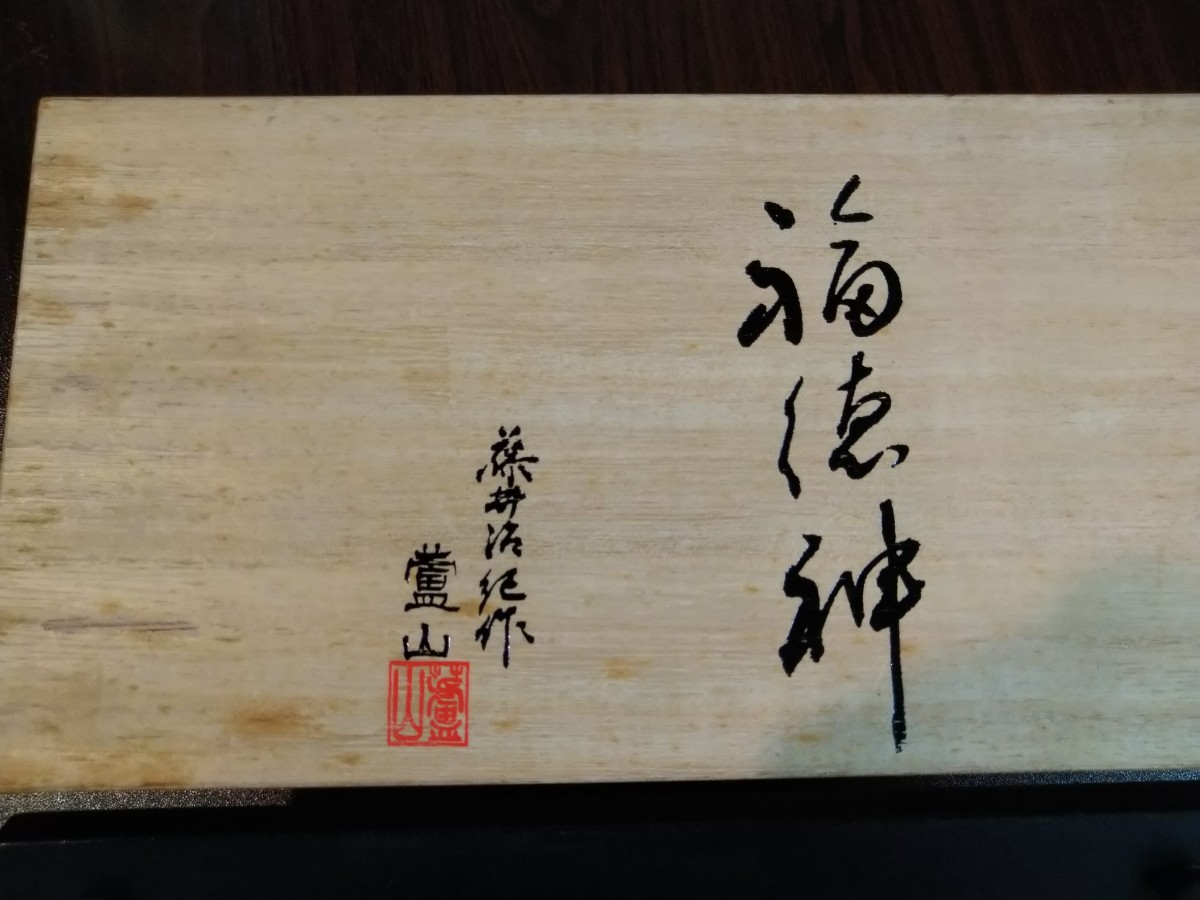 福徳神
藤井治紀作
蘆山
蘆山